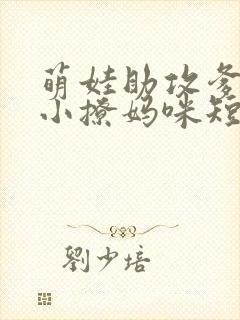 萌娃助攻爹
小撩妈咪短
劉少培